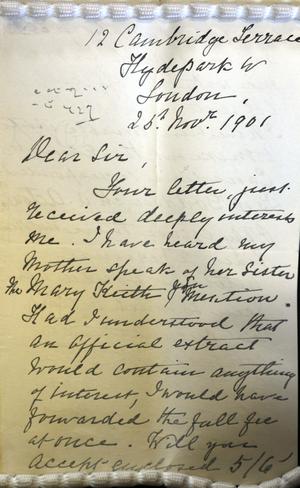 12 Cambridge Terrace
Hyde Park W
London,
25th Novr. 1901
Dear Sir,
Your letter, just
received deeply interests
me. I have heard my
Mother speak of her Sister
the Mary Keith you mention.
Had I understood that
an official extract
would contain anything
of interest, I would have
forwarded the full fee
at once. Will you
accept enclosed 5/6